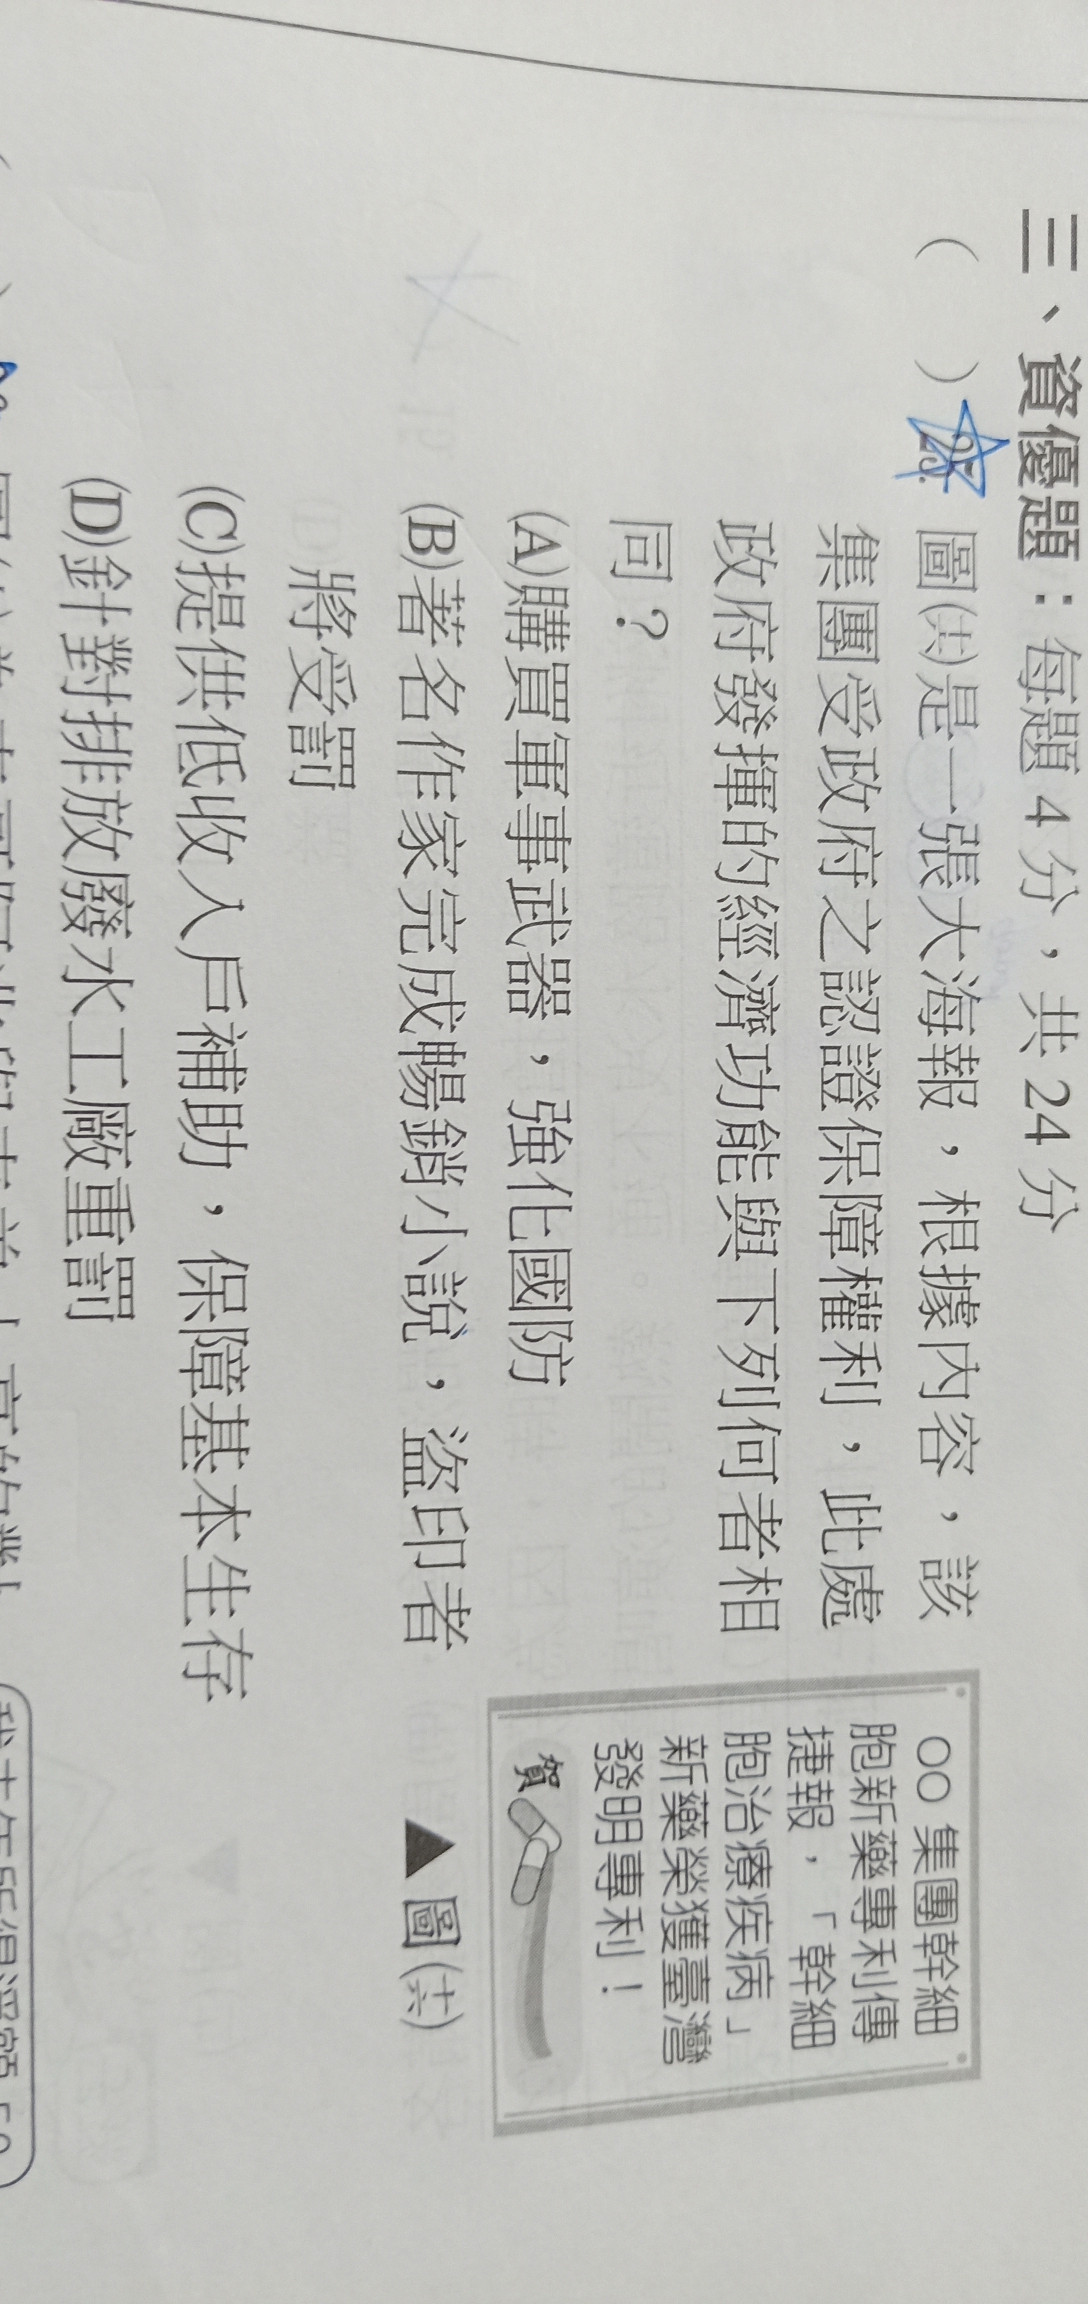 三、資優題：每題 4 分，共 24 分
(　) 25. 圖㈩是一張大海報，根據內容，該
集團受政府之認證保障權利，此處
政府發揮的經濟功能與下列何者相
同？
(A)購買軍事武器，強化國防
(B)著名作家完成暢銷小說，盜印者
將受罰
(C)提供低收入戶補助，保障基本生存
(D)針對排放廢水工廠重罰
OO 集團幹細
胞新藥專利傳
捷報，「幹細
胞治療疾病」
新藥榮獲臺灣
發明專利！
賀
▲ 圖